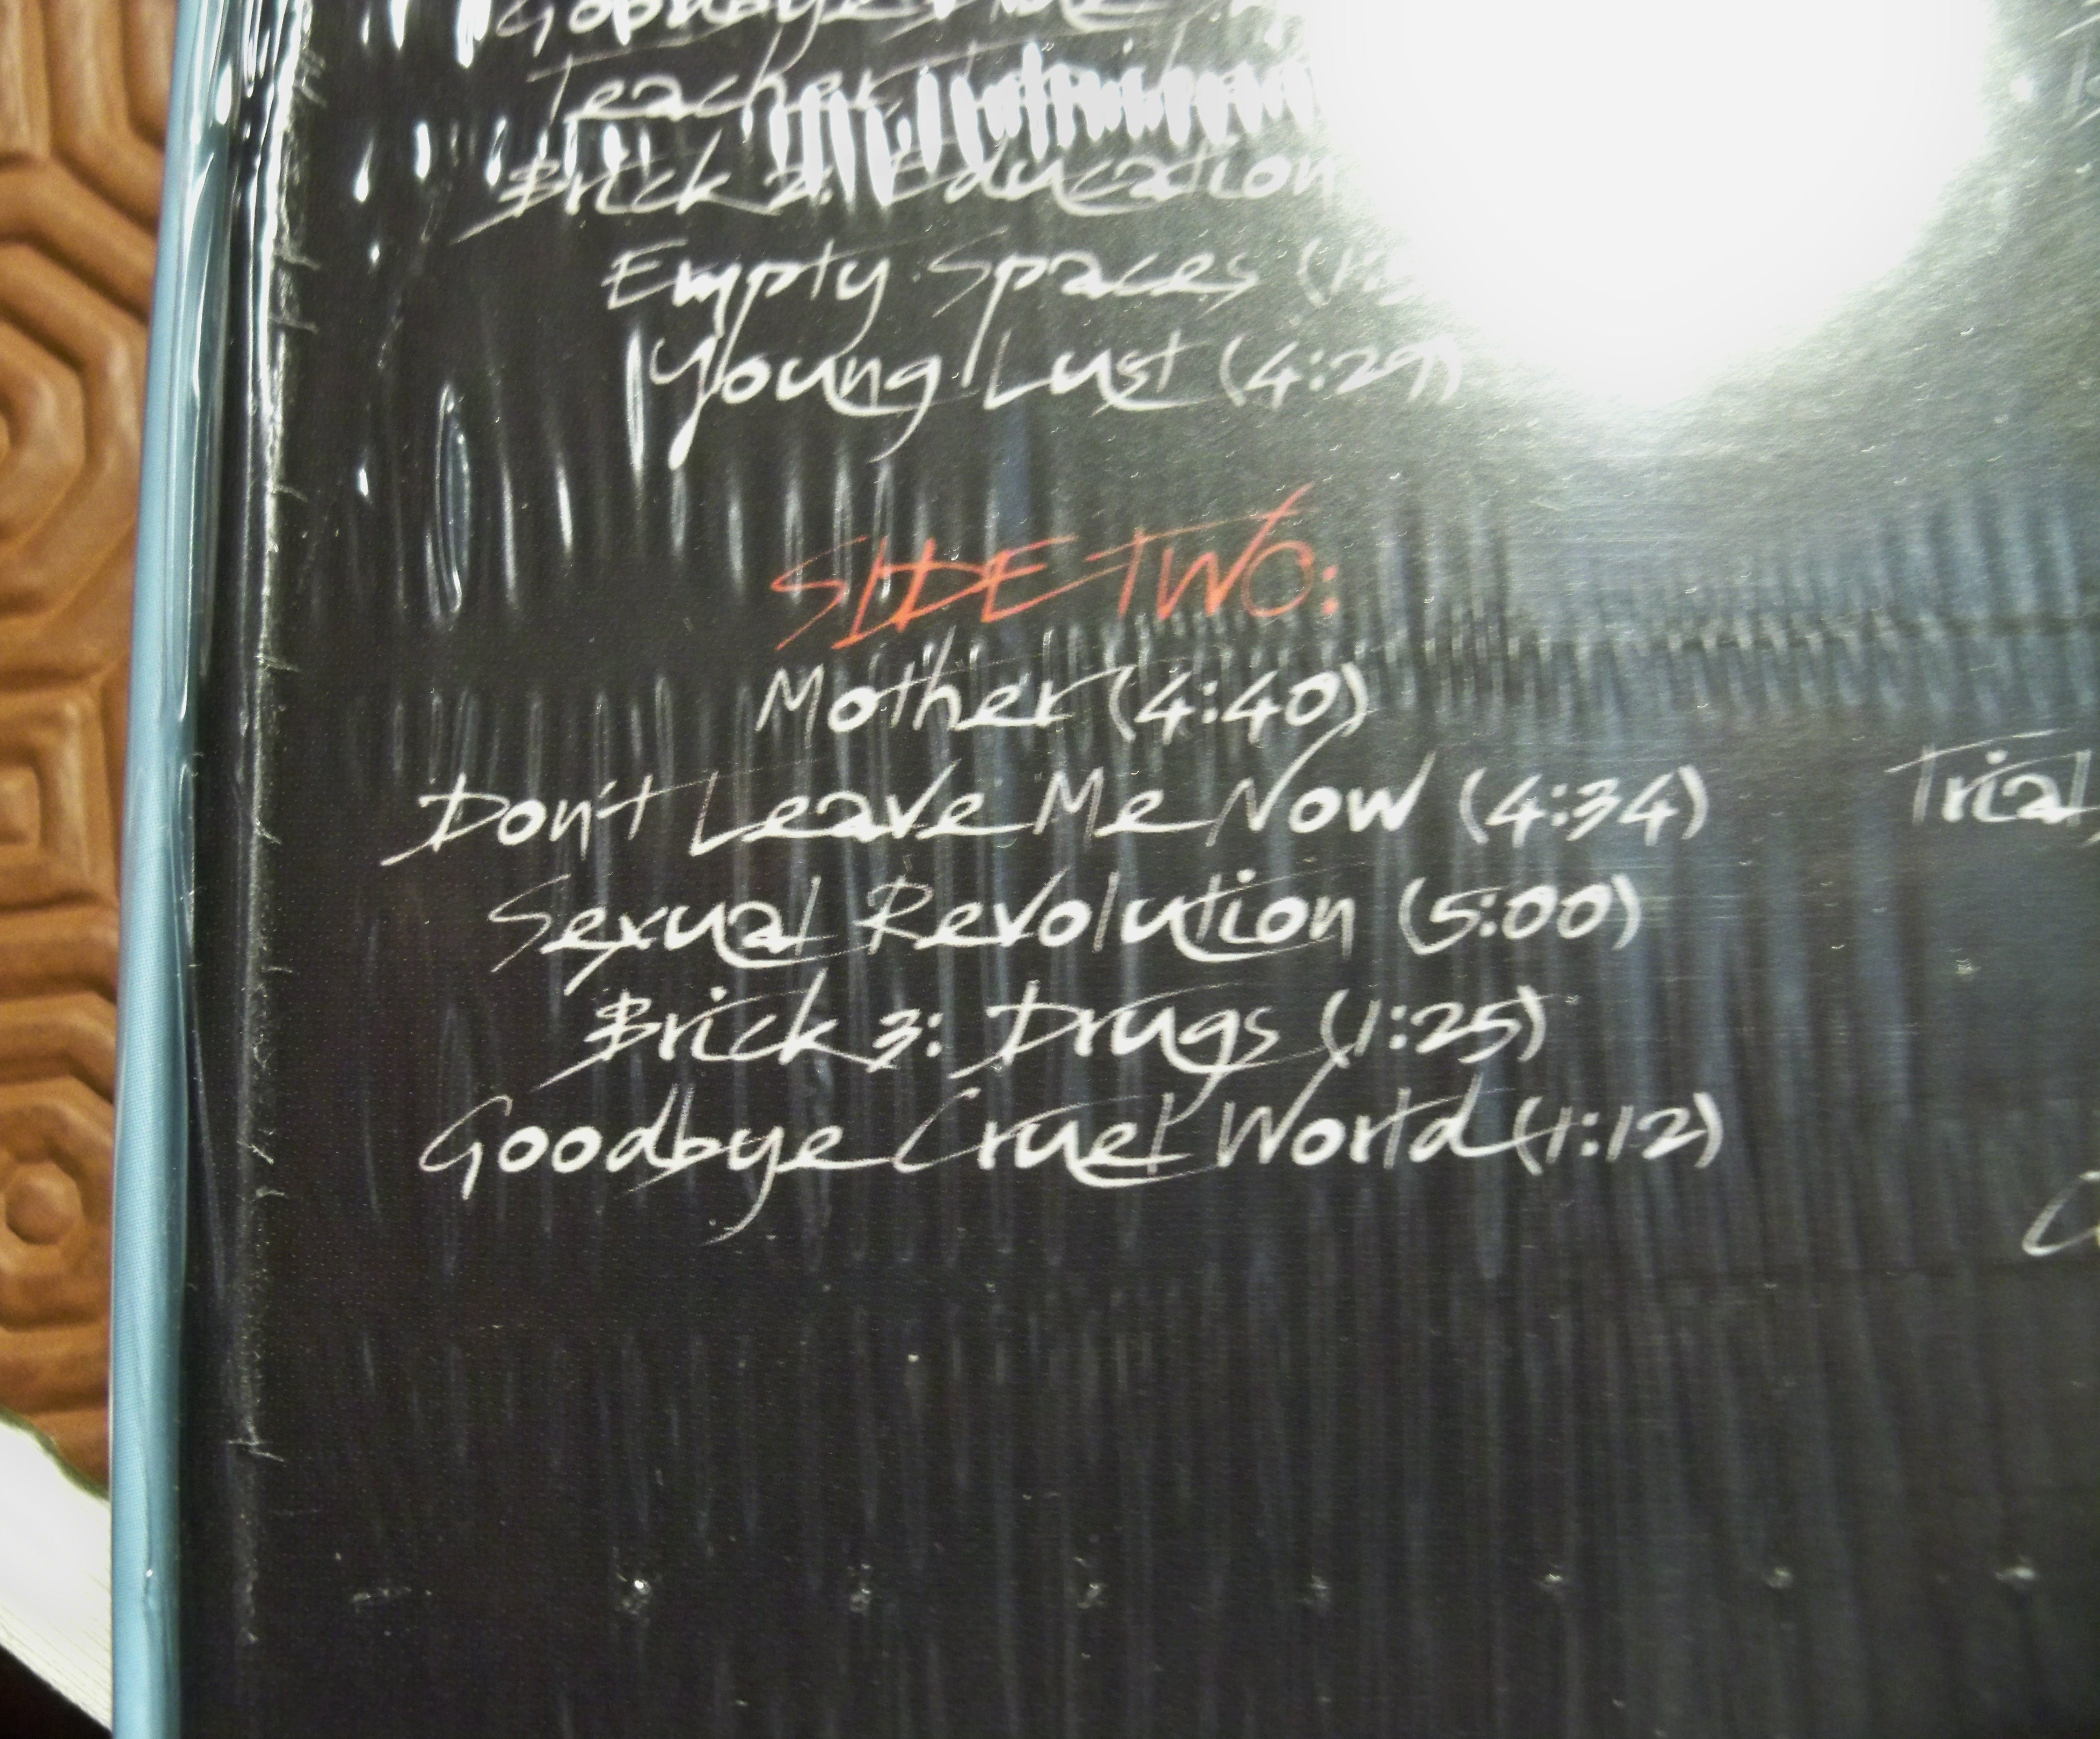 Goodbye Blue
Teacher Teacher
Brick 2: Education
Empty Spaces (1:2
Young Lust (4:29)
SIDE TWO:
Mother (4:40)
Don't Leave Me Now (4:34)
Trial
Sexual Revolution (5:00)
Brick 3: Drugs (1:25)
Goodbye Cruel World (1:12)